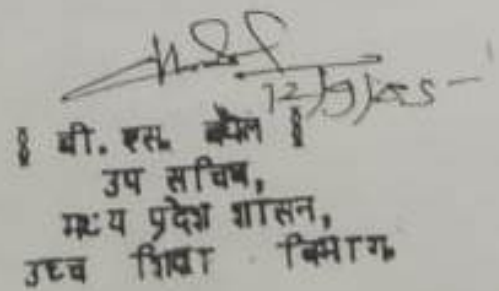 12/9/85
§ बी. एस. बघेल §
उप सचिव,
मध्य प्रदेश शासन,
उच्च शिक्षा विभाग.